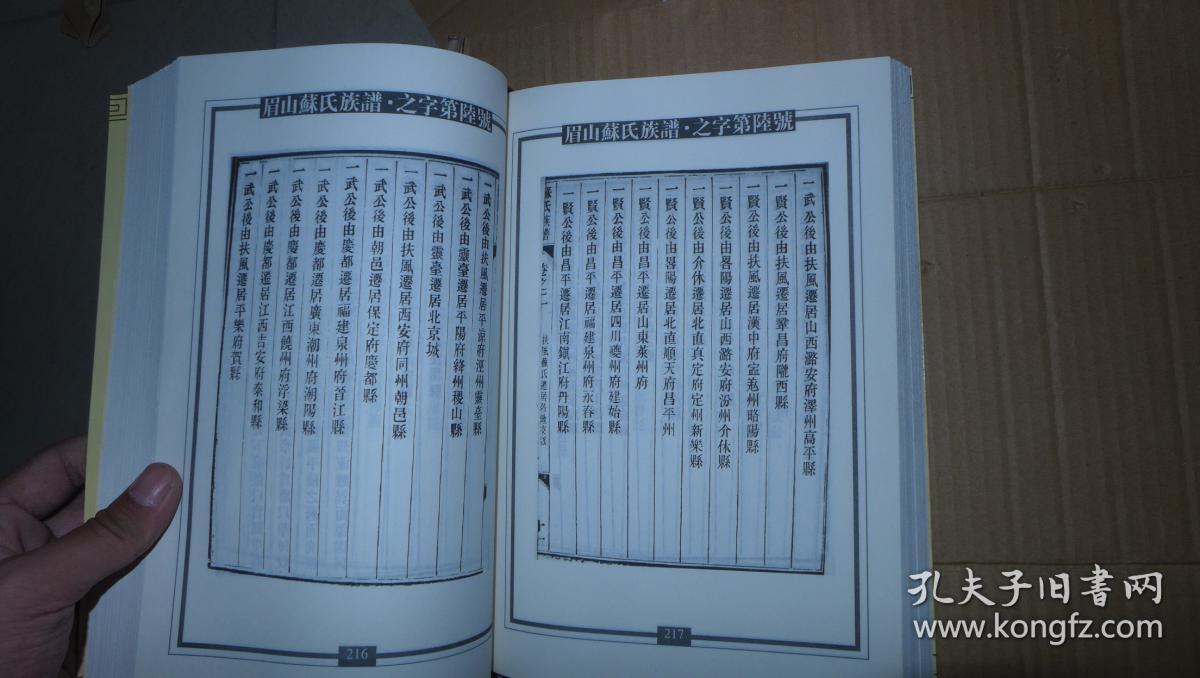 眉山蘇氏族譜·之字第陸號
一武公後由扶風遷居平涼府涇州靈臺縣
一武公後由靈臺遷居平陽府絳州稷山縣
一武公後由靈臺遷居北京城
一武公後由扶風遷居西安府同州朝邑縣
一武公後由朝邑遷居保定府慶都縣
一武公後由慶都遷居福建泉州府晉江縣
一武公後由慶都遷居廣東潮州府潮陽縣
一武公後由慶都遷居江西饒州府浮梁縣
一武公後由慶都遷居江西吉安府泰和縣
一武公後由扶風遷居平樂府賀縣
216
眉山蘇氏族譜·之字第陸號
一武公後由扶風遷居山西潞安府澤州高平縣
一賢公後由扶風遷居鞏昌府隴西縣
一賢公後由扶風遷居漢中府寧羗州略陽縣
一賢公後由畧陽遷居山西潞安府汾州介休縣
一賢公後由介休遷居北直真定府定州新樂縣
一賢公後由畧陽遷居北直順天府昌平州
一賢公後由昌平遷居山東萊州府
一賢公後由昌平遷居四川夔州府建始縣
一賢公後由昌平遷居福建泉州府永春縣
一賢公後由昌平遷居江南鎮江府丹陽縣
蘇氏族譜 卷之二 扶風蘇氏遷居各地支派
217
孔夫子旧书网
www.kongfz.com